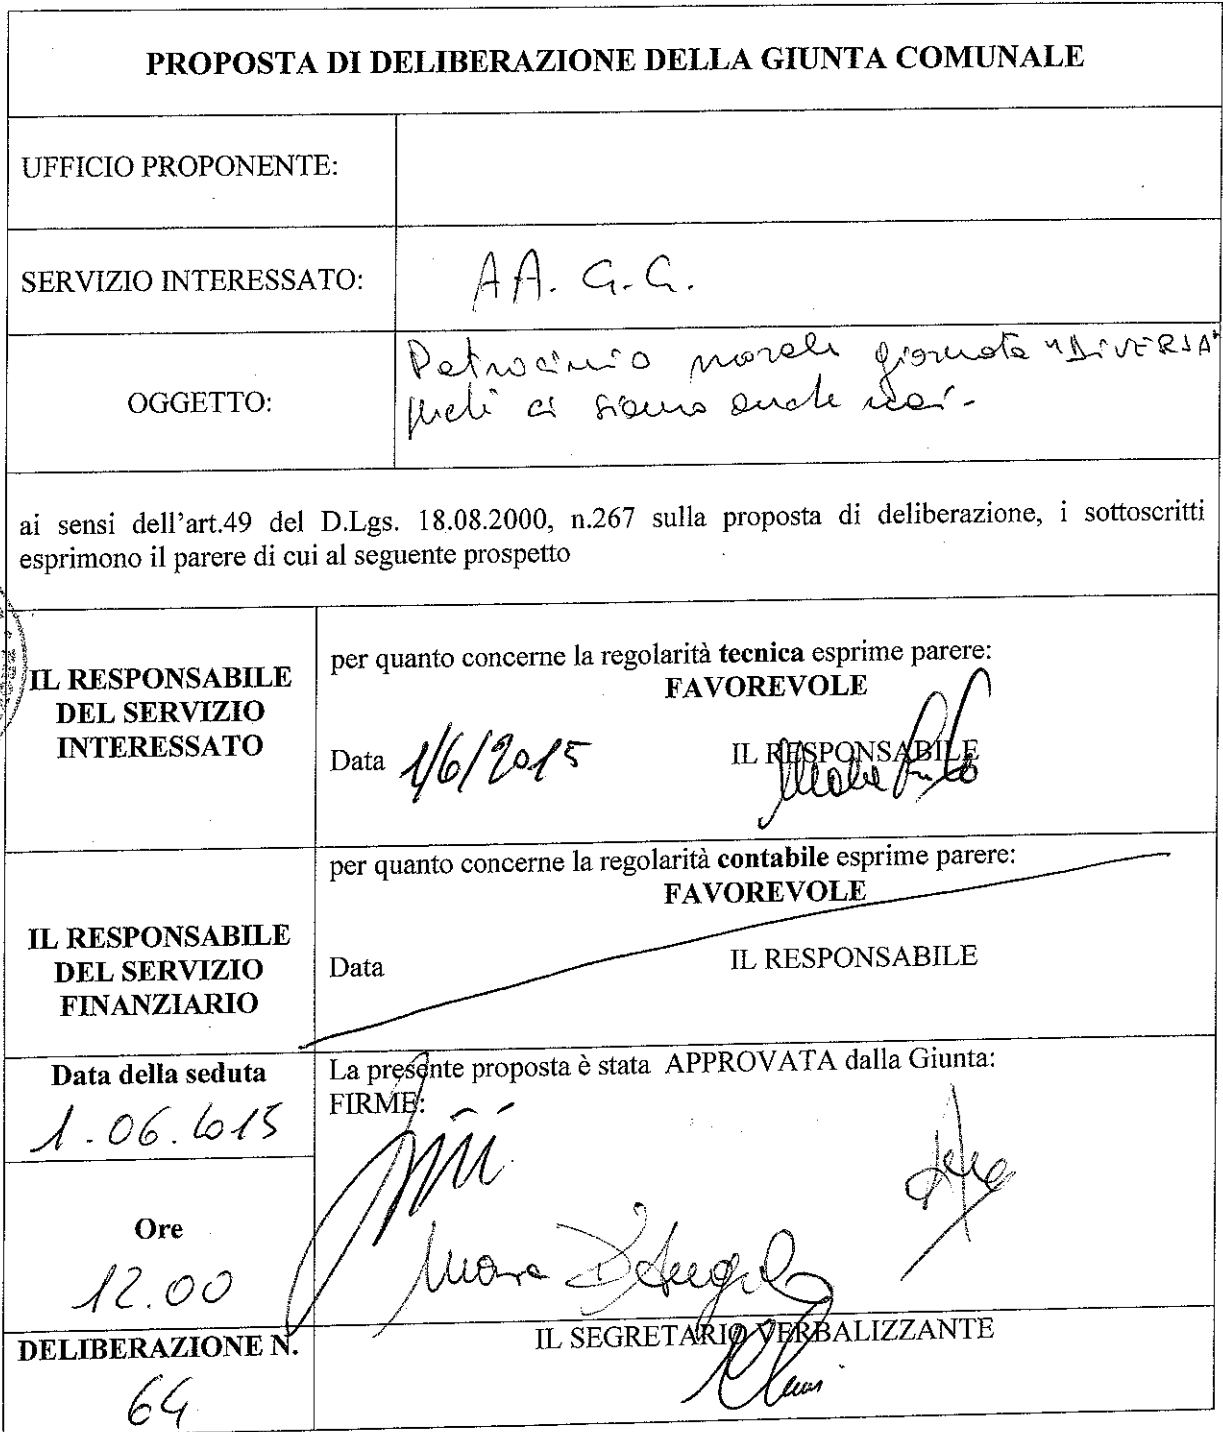 PROPOSTA DI DELIBERAZIONE DELLA GIUNTA COMUNALE
UFFICIO PROPONENTE:
SERVIZIO INTERESSATO:
AA. G.G.
OGGETTO:
Patrocinio morale giornata "DIVERSA"
ci siamo anche noi.
ai sensi dell'art.49 del D.Lgs. 18.08.2000, n.267 sulla proposta di deliberazione, i sottoscritti
esprimono il parere di cui al seguente prospetto
IL RESPONSABILE
DEL SERVIZIO
INTERESSATO
per quanto concerne la regolarità tecnica esprime parere:
FAVOREVOLE
Data 1/6/2015
IL RESPONSABILE
IL RESPONSABILE
DEL SERVIZIO
FINANZIARIO
per quanto concerne la regolarità contabile esprime parere:
FAVOREVOLE
Data
IL RESPONSABILE
Data della seduta
1.06.2015
Ore
12.00
DELIBERAZIONE N.
64
La presente proposta è stata APPROVATA dalla Giunta:
FIRME:
Mara D'Angelo
IL SEGRETARIO VERBALIZZANTE